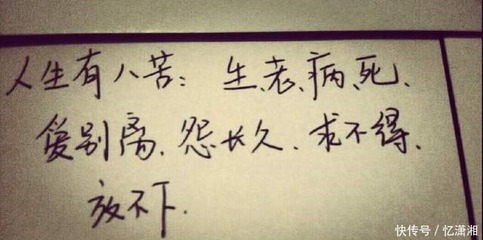 人生有八苦：生、老、病、死、
爱别离、怨长久、求不得、
放不下.
快传号／忆潇湘